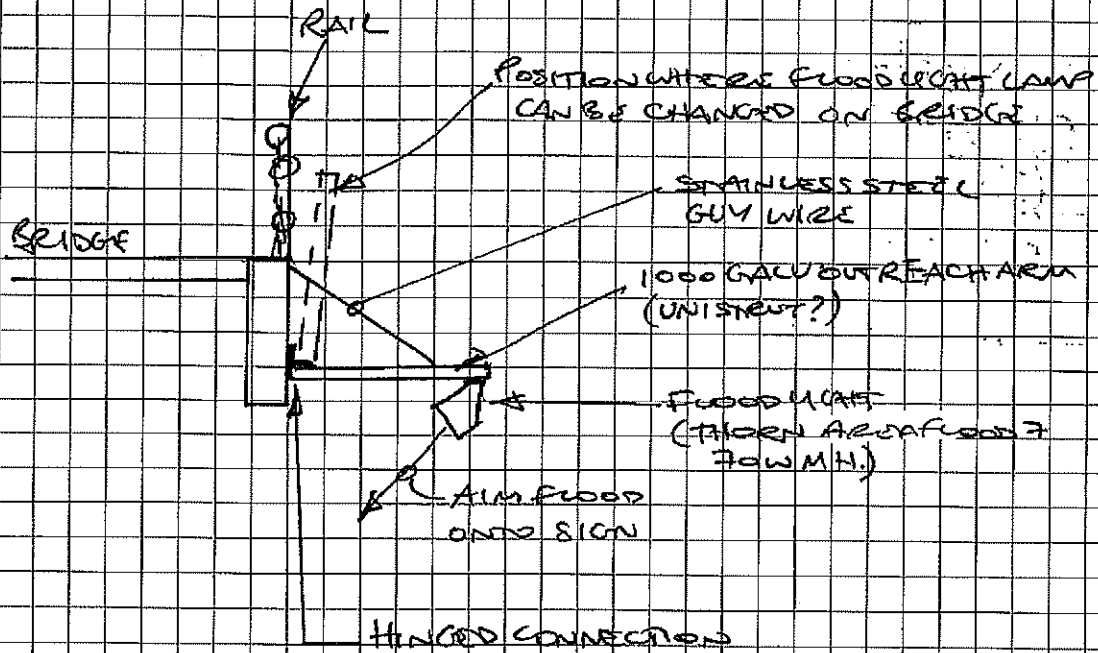 RAIL
POSITION WHERE FLOODLIGHT LAMP
CAN BE CHANGED ON BRIDGE
STAINLESS STEEL
GUY WIRE
BRIDGE
1000 GALV OUTREACH ARM
(UNISTRUT?)
FLOODLIGHT
(THORN AREAFLOOD 7
70W MH.)
AIM FLOOD
ONTO SIGN
HINGED CONNECTION